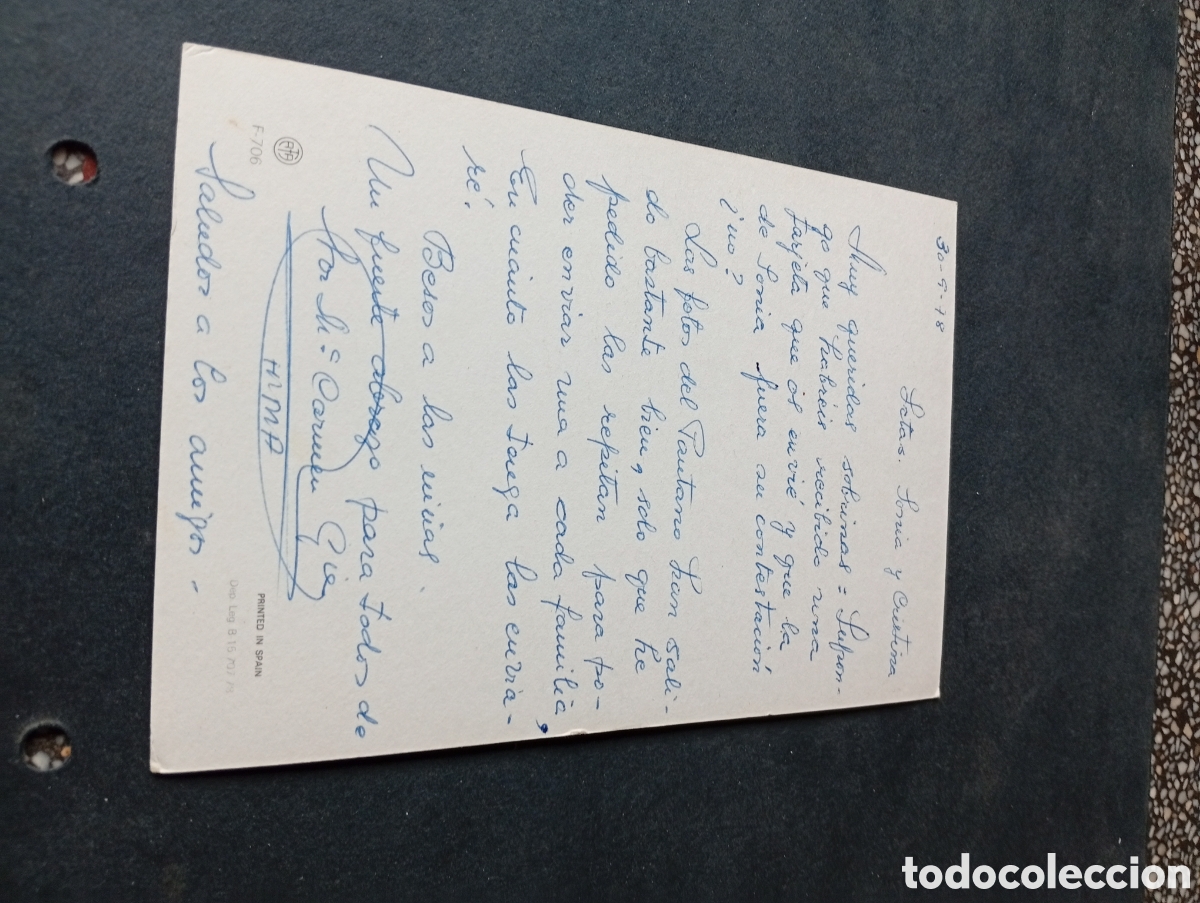 30-9-78
Srtas. Sonia y Cristina
Muy queridas sobrinas = Supon-
go que habreis recibido una
tarjeta que os envié y que la
de Sonia fuera su contestación
¿no?
Las fotos del Pantano han sali-
do bastante bien, solo que he
pedido las repitan para po-
der enviar una a cada familia,
En cuanto las tenga las envia-
ré.
Besos a las niñas.
Un fuerte abrazo para todos de
Sor Mª Carmen
HMMA
Saludos a los amigos -
F-706
PRINTED IN SPAIN
Dep. Leg. B-15.707
todocoleccion